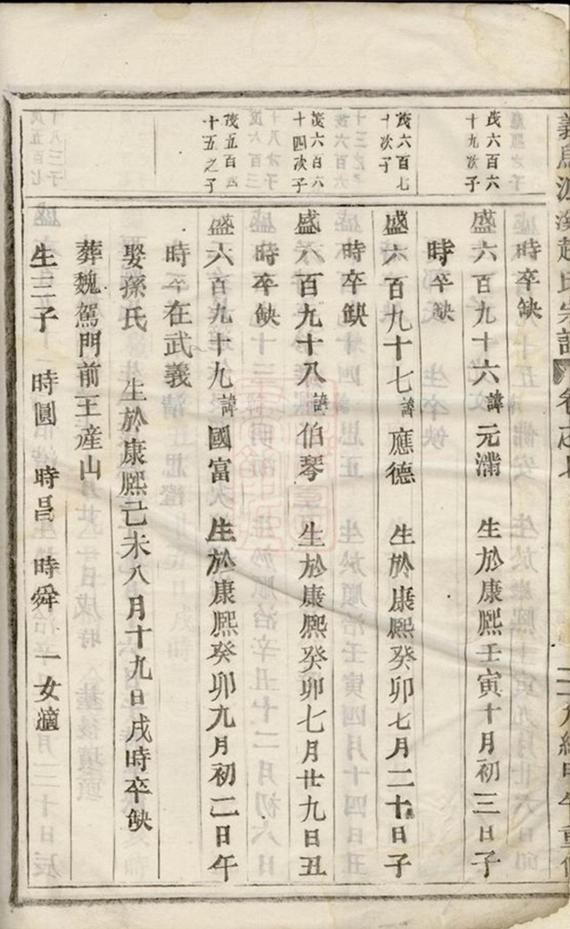 義烏
趙氏宗譜
卷之七
茂六百六
十九次子
盛六百九十六諱元滿 生於康熙壬寅十月初三日子
時卒缺
茂六百七
十次子
盛六百九十七諱應德 生於康熙癸卯七月二十日子
時卒缺
茂六百六
十四次子
盛六百九十八諱伯琴 生於康熙癸卯七月廿九日丑
時卒缺
茂五百
十五之子
盛六百九十九諱國富 生於康熙癸卯九月初二日午
時卒在武義
娶孫氏 生於康熙己未八月十九日戌時卒缺
葬魏駕門前王產山
生三子 時圓 時昌 時舜 一女適